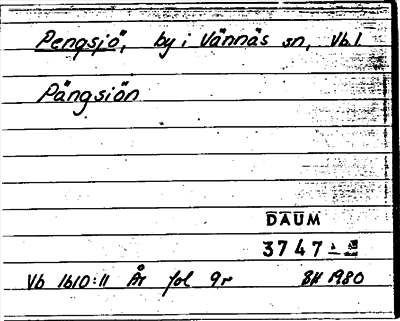 Pengsjö, by i Vännäs sn, Vb.l.
Pängsiön
DAUM
3747
Vb 1610:11 År fol 9r BH 1980